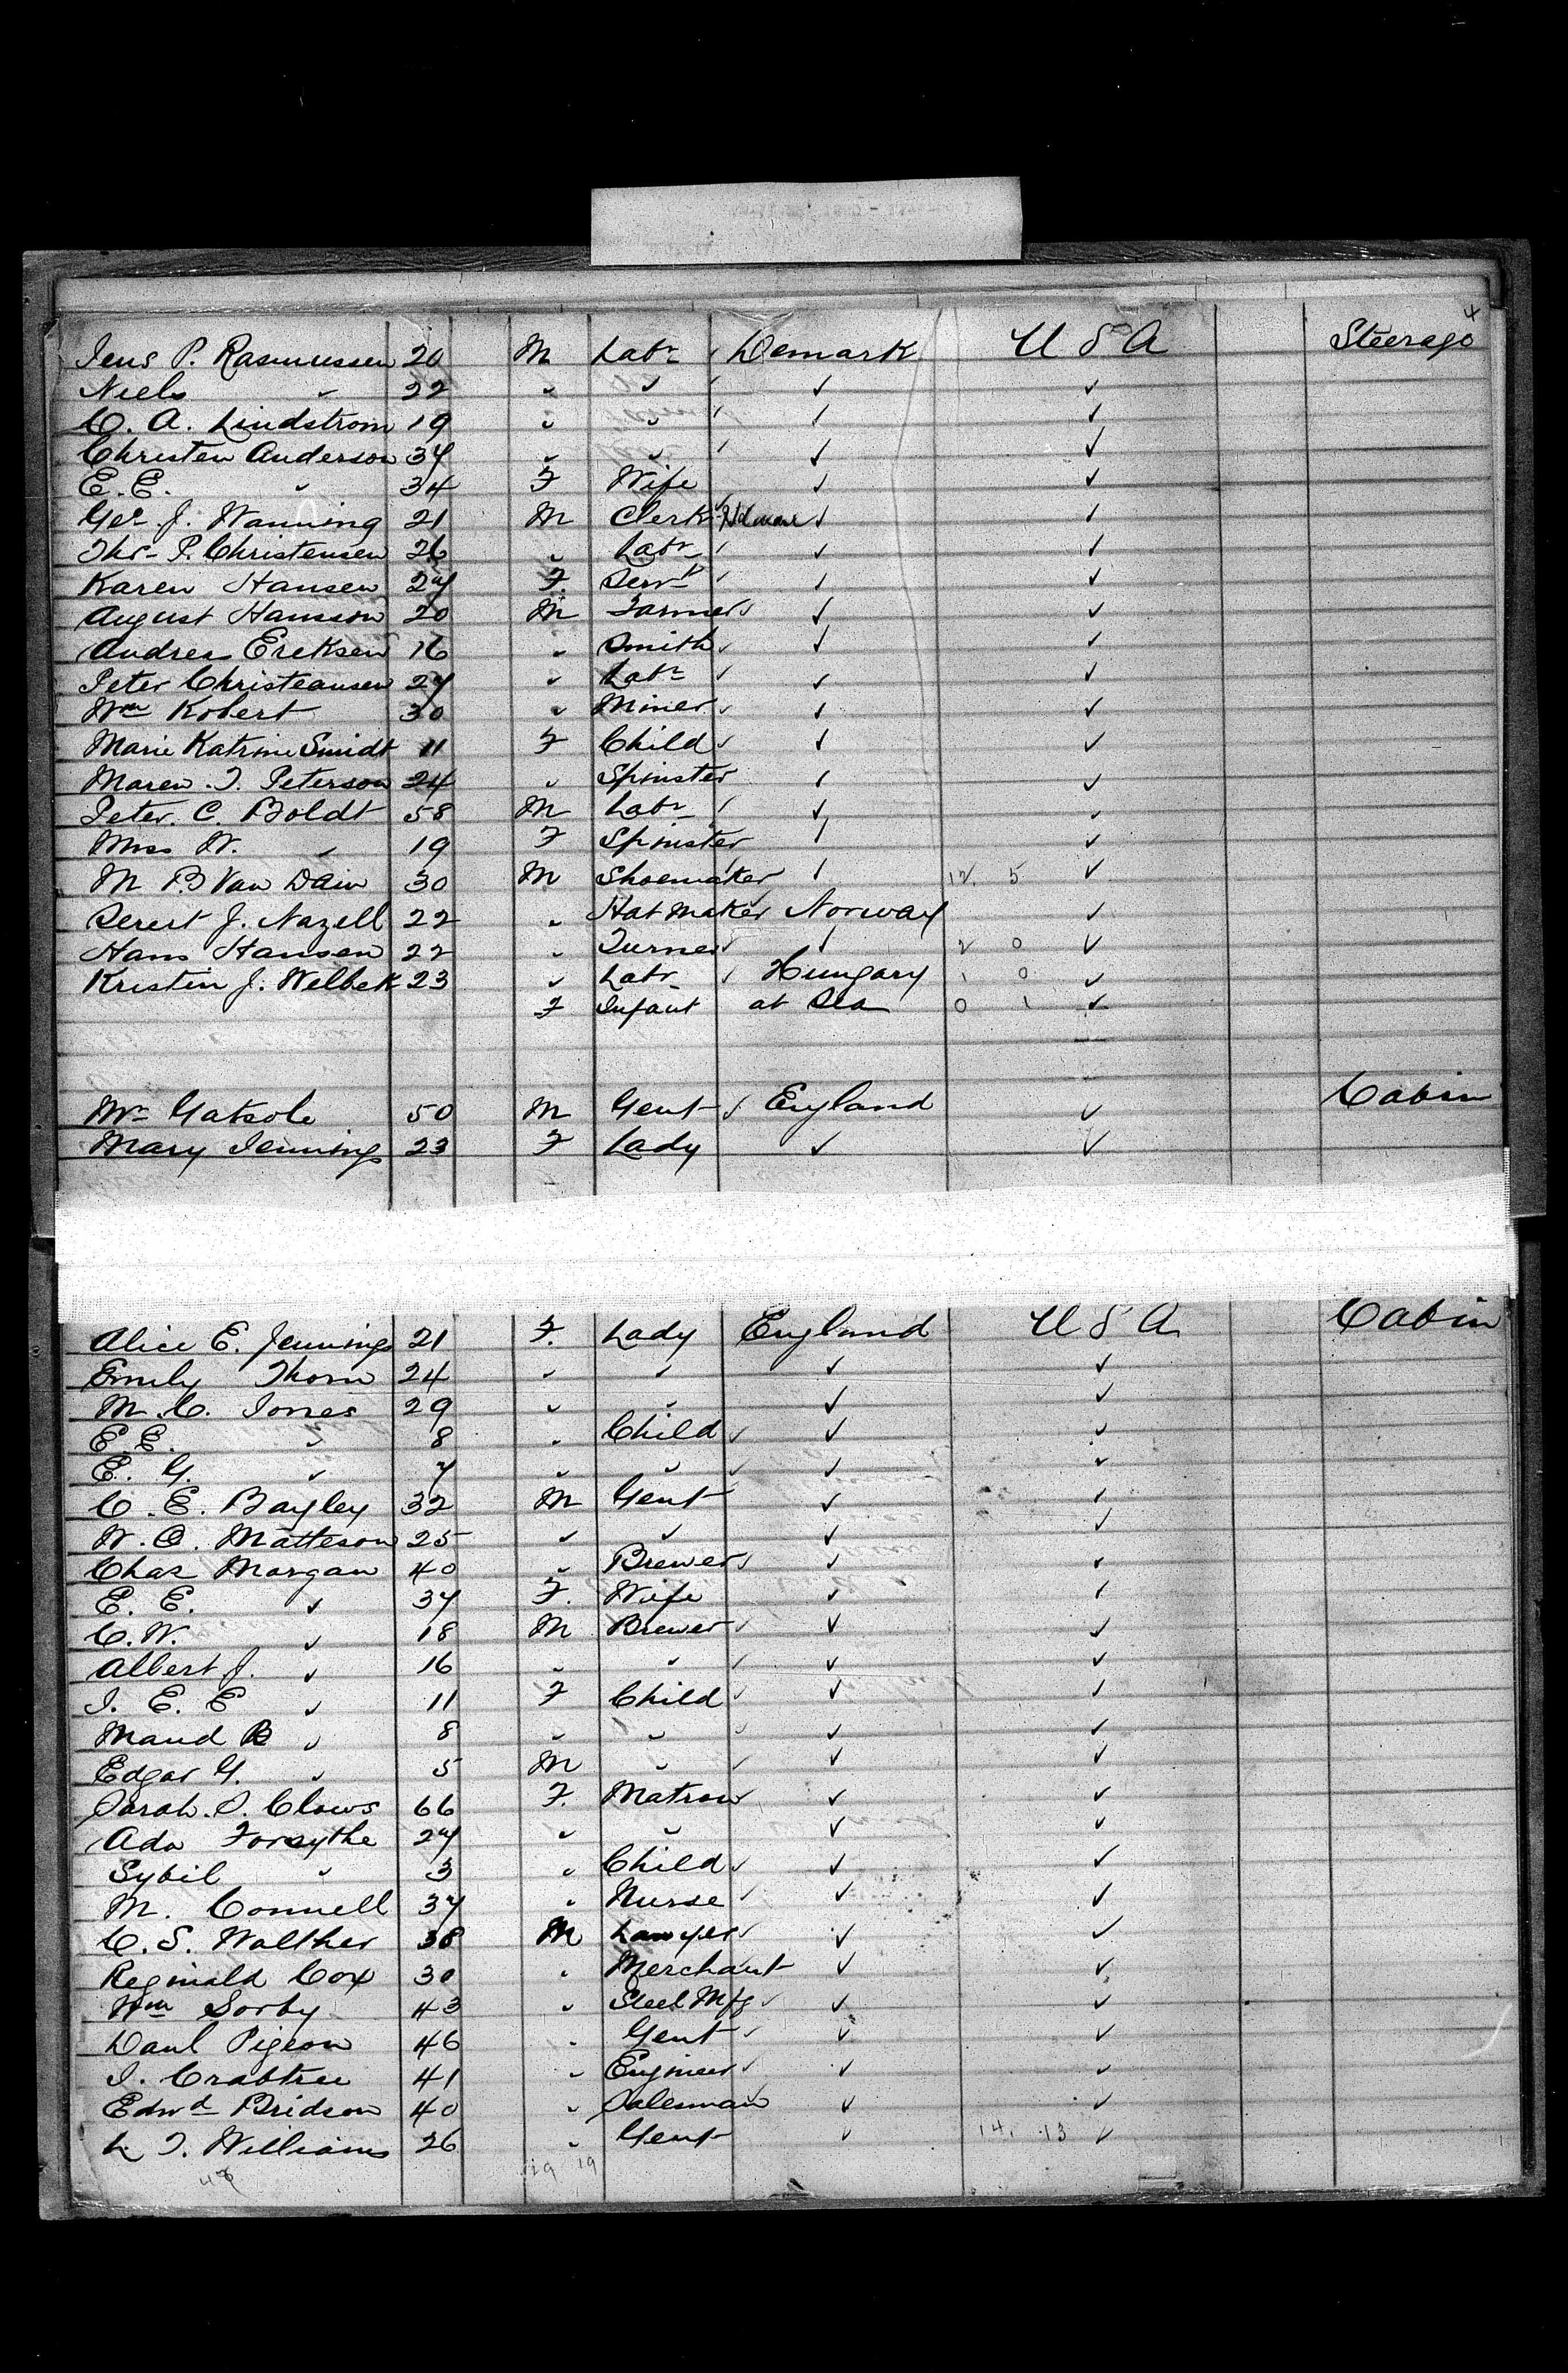 4
Jens P. Rasmussen 20 M Labr ✓ Demark U S A Steerage
Niels " 22 " " ✓ ✓ ✓
C. A. Lindstrom 19 " " ✓ ✓ ✓
Christen Anderson 34 " " ✓ ✓ ✓
E. E. " 34 F Wife ✓ ✓
Geo. J. Wanning 21 M Clerk ✓ ✓
Thr. P. Christensen 26 " Labr ✓ ✓ ✓
Karen Hansen 27 F. Servt ✓ ✓ ✓
August Hansson 20 M Farmer ✓ ✓ ✓
Andrea Ereksen 16 " Smith ✓ ✓ ✓
Peter Christeansen 27 " Labr ✓ ✓ ✓
Wm Kobert 30 " Miner ✓ ✓ ✓
Marie Katrine Smidt 11 F Child ✓ ✓ ✓
Maren. T. Peterson 24 " Spinster ✓ ✓
Peter. C. Boldt 58 M Labr ✓ ✓ ✓
Miss W. " 19 F Spinster ✓ ✓
M B Van Dain 30 M Shoemaker ✓ ✓ 12. 5 ✓
Serest J. Nazell 22 " Hat Maker ✓ Norway ✓
Hans Hansen 22 " Turner ✓ ✓ 2 0 ✓
Kristin J. Welbek 23 " Labr ✓ Hungary 1 0 ✓
F Infant at Sea 0 1 ✓
Mr Gatsole 50 M Gent ✓ England ✓ Cabin
Mary Jennings 23 F Lady ✓ ✓
Alice E. Jennings 21 F. Lady England U S A Cabin
Emily Thorn 24 " " ✓ ✓
M. C. Jones 29 " " ✓ ✓
E. E. " 8 " Child ✓ ✓ ✓
E. G. " 7 " " ✓ ✓ ✓
C. E. Bayley 32 M Gent ✓ ✓
W. O. Matteson 25 " " ✓ ✓
Chas Morgan 40 " Brewer ✓ ✓ ✓
E. E. " 37 F. Wife ✓ ✓
C. W. " 18 M Brewer ✓ ✓ ✓
Albert J. " 16 " " ✓ ✓ ✓
I. E. E " 11 F Child ✓ ✓ ✓
Maud B " 8 " " ✓ ✓ ✓
Edgar G. " 5 M " ✓ ✓ ✓
Sarah. S. Clows 66 F. Matron ✓ ✓
Ada Forsythe 27 " " ✓ ✓
Sybil " 3 " Child ✓ ✓ ✓
M. Connell 37 " Nurse ✓ ✓ ✓
C. S. Walther 38 M Lawyer ✓ ✓ ✓
Reginald Cox 30 " Merchant ✓ ✓
Wm Sorby 43 " Steel Mfg ✓ ✓ ✓
Danl Pigeon 46 " Gent ✓ ✓ ✓
I. Crabtree 41 " Engineer ✓ ✓ ✓
Edwd Bridson 40 " Salesman ✓ ✓ ✓
L T. Williams 26 " Gent ✓ 14. 13 ✓
29 19